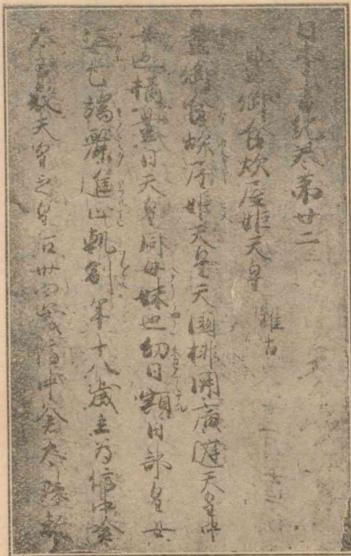 日本書紀卷第廿二
豐御食炊屋姬天皇 推古
豐御食炊屋姬天皇天國排開廣庭天皇中
女也橘豐日天皇同母妹也幼曰額田部皇女
姿色端麗進止軌制年十八歲立為渟中倉
太玉敷天皇之皇后卅四歲渟中倉太珠敷